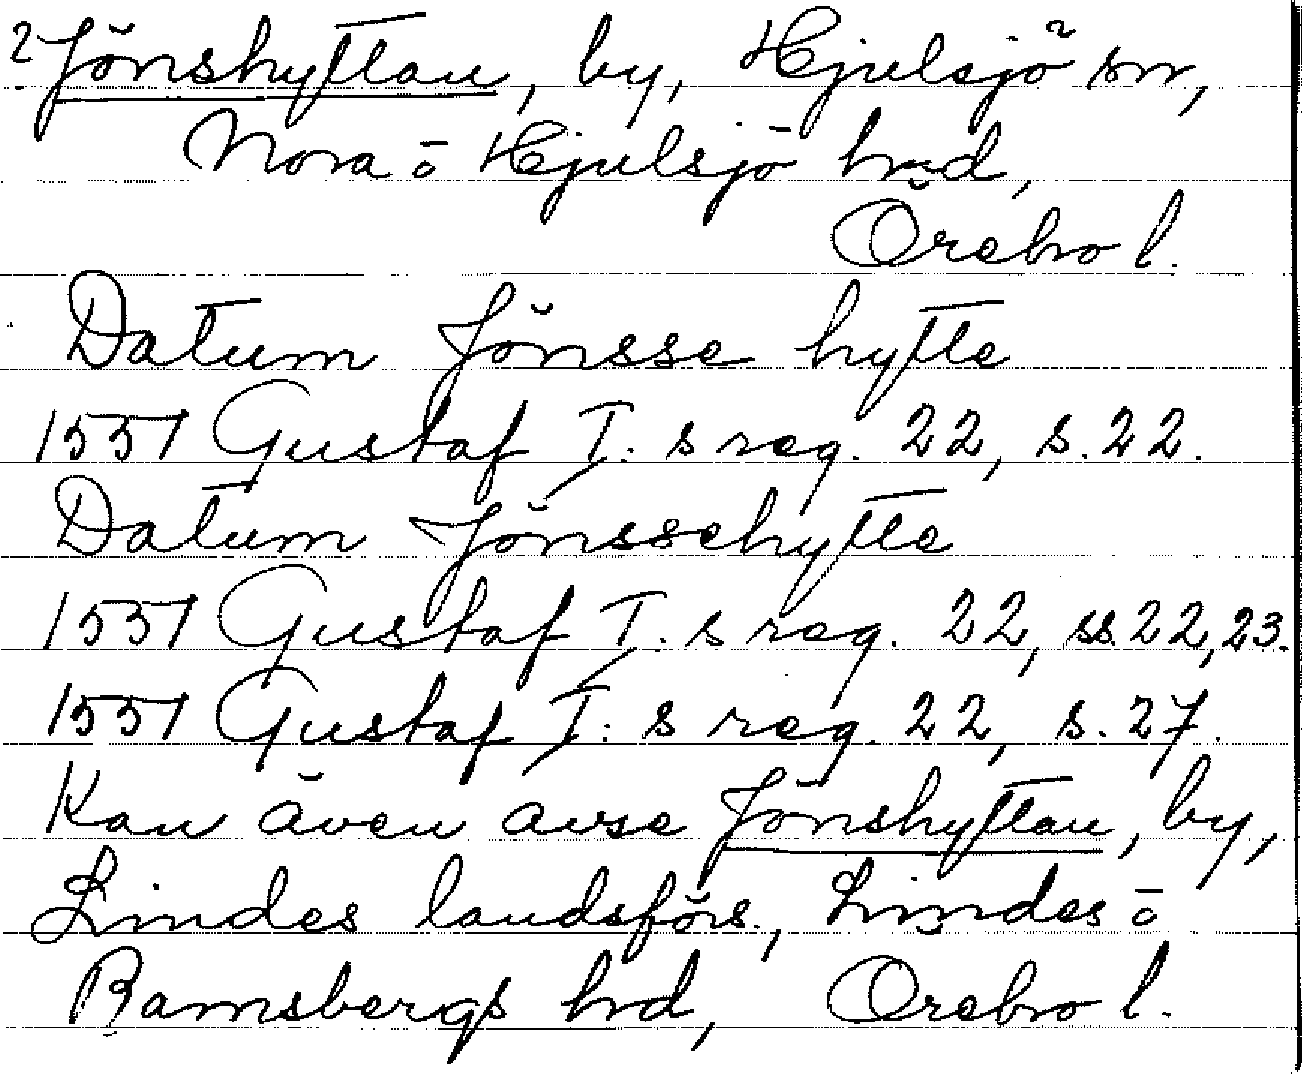 2 Jönshyttan, by, Hjulsjö sn,
Nora o Hjulsjö hrd,
Örebro l.
Datum Jönsse hytte
1551 Gustaf I: s reg. 22, s. 22.
Datum Jönssehytte
1551 Gustaf I: s reg. 22, ss. 22, 23.
1551 Gustaf I: s reg. 22, s. 27.
Kan även avse Jönshyttan, by,
Lindes landsförs., Lindes o
Ramsbergs hrd, Örebro l.